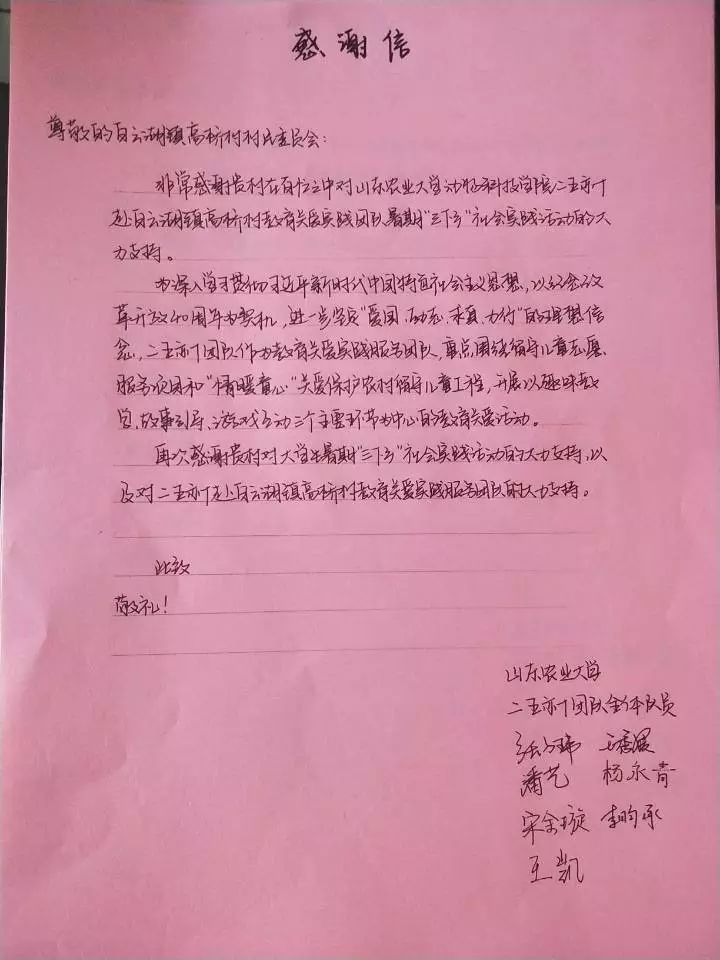 感谢信
尊敬的白云湖镇高桥村村民委员会:
非常感谢贵村在百忙之中对山东农业大学动物科技学院二五亦
赴白云湖镇高桥村教育关爱实践团队暑期"三下乡"社会实践活动的大
力支持。
为深入学习贯彻习近平新时代中国特色社会主义思想,以纪念改
革开放40周年为契机,进一步坚定"爱国、励志、求真、力行"的理想信
念,二五亦团队作为教育关爱实践服务团队,重点围绕留守儿童志愿
服务项目和"情暖童心"关爱保护农村留守儿童工程,开展以趣味教
学、故事引导、游戏互动三个主要环节为中心的教育关爱活动。
再次感谢贵村对大学生暑期"三下乡"社会实践活动的大力支持,以
及对二五亦赴白云湖镇高桥村教育关爱实践服务团队的大力支持。
此致
敬礼!
山东农业大学
二五亦团队全体队员
潘艺 杨永青
宋余璇 李昀承
王凯